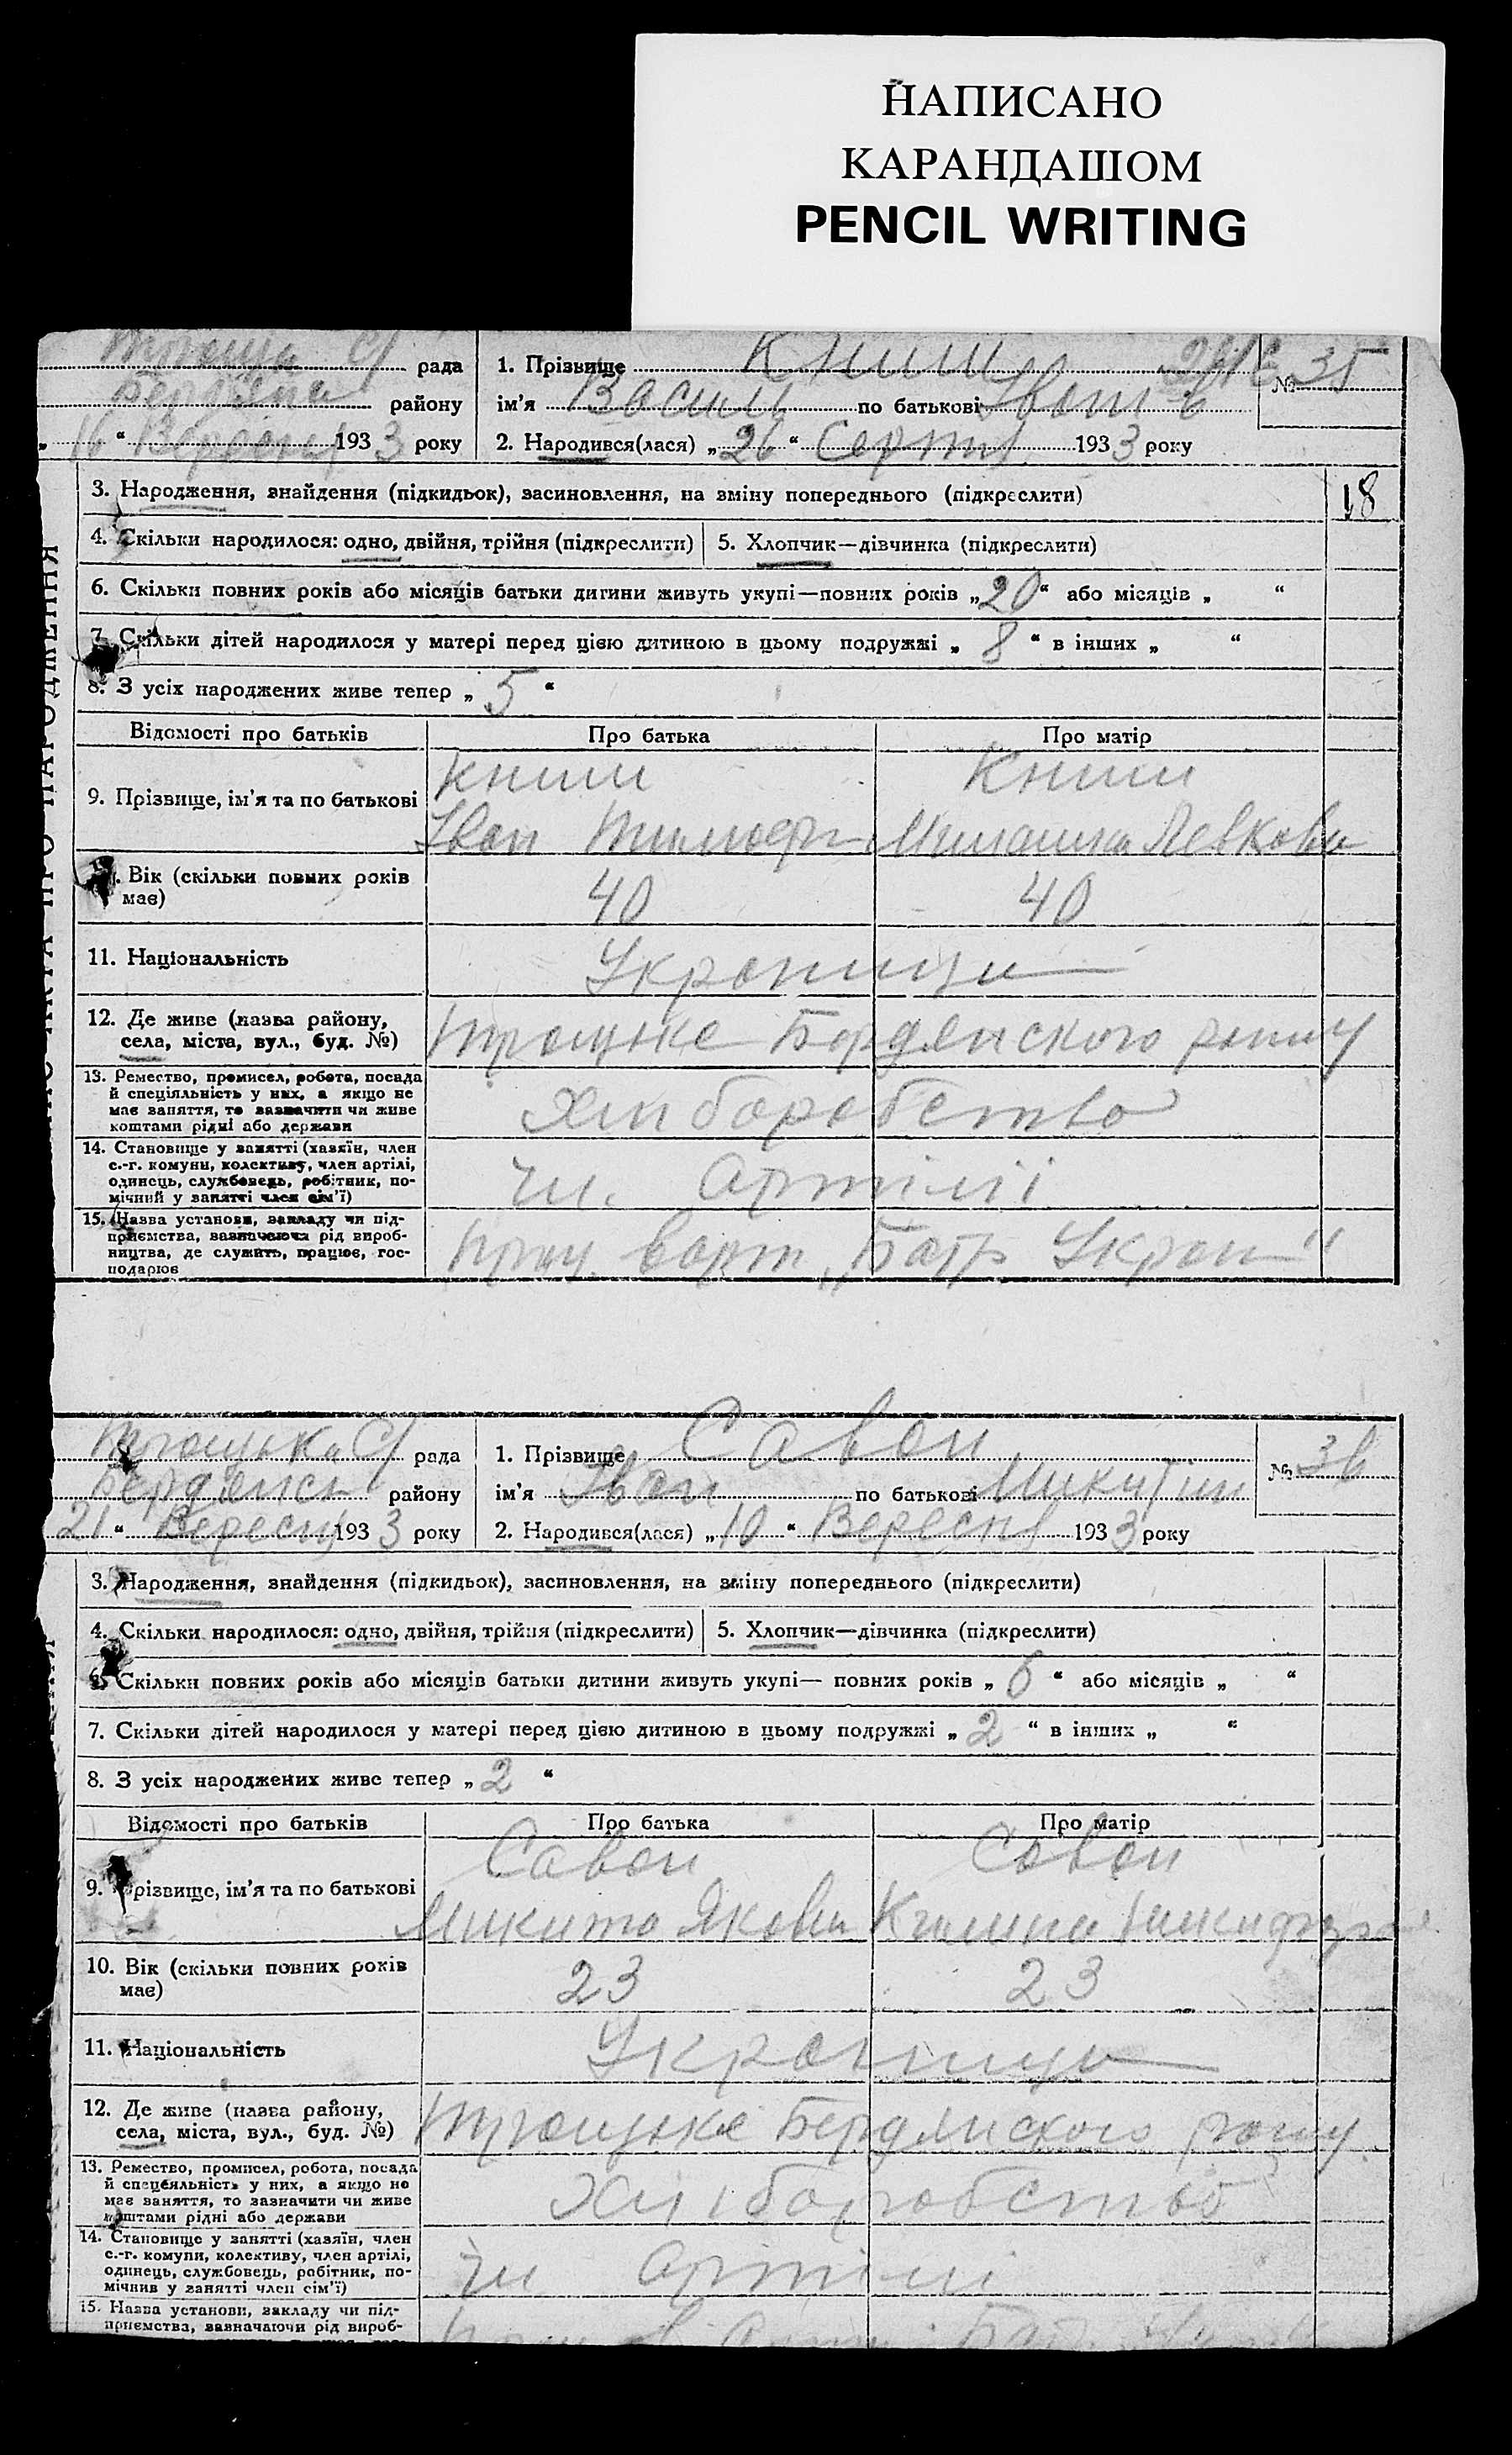 НАПИСАНО
КАРАНДАШОМ
PENCIL WRITING
рада
району
„ 16 “ Вересня 1933 року
1. Прізвище Книш
ім'я Василь по батькові Іванів
2. Народився(лася) „ 26 “ Серпня 1933 року
№ 35
3. Народження, знайдення (підкидьок), засиновлення, на зміну попереднього (підкреслити)
18
4. Скільки народилося: одно, двійня, трійня (підкреслити)
5. Хлопчик—дівчинка (підкреслити)
6. Скільки повних років або місяців батьки дитини живуть укупі—повних років „ 20 “ або місяців „ “
7. Скільки дітей народилося у матері перед цією дитиною в цьому подружжі „ 8 “ в інших „ “
8. З усіх народжених живе тепер „ 5 “
Відомості про батьків
Про батька
Про матір
9. Прізвище, ім'я та по батькові
Книш
Іван
Книш
Левкова
. Вік (скільки повних років
має)
40
40
11. Національність
Українци
12. Де живе (назва району,
села, міста, вул., буд. №)
Троцьке Бердянского
13. Ремество, промисел, робота, посада
й спеціяльність у них, а якщо не
має заняття, то зазначити чи живе
коштами рідні або держави
Хліборобство
14. Становище у занятті (хазяїн, член
с.-г. комуни, колективу, член артілі,
одинець, службовець, робітник, по-
мічний у занятті член сім'ї)
чл. Артілії
15. (Назва установи, закладу чи під-
приємства, зазначаючи рід вироб-
ництва, де служить, працює, гос-
подарює
рада
Бердянськ району
21 “ Вересня 1933 року
1. Прізвище Савон
ім'я Іван по батькові Микитин
2. Народився(лася) „ 10 “ Вересня 1933 року
№ 36
3. Народження, знайдення (підкидьок), засиновлення, на зміну попереднього (підкреслити)
4. Скільки народилося: одно, двійня, трійня (підкреслити)
5. Хлопчик—дівчинка (підкреслити)
Скільки повних років або місяців батьки дитини живуть укупі— повних років „ 6 “ або місяців „ “
7. Скільки дітей народилося у матері перед цією дитиною в цьому подружжі „ 2 “ в інших „ “
8. З усіх народжених живе тепер „ 2 “
Відомості про батьків
Про батька
Про матір
9. Прізвище, ім'я та по батькові
Савон
Микита Якови
Савон
10. Вік (скільки повних років
має)
23
23
11. Національність
Українци
12. Де живе (назва району,
села, міста, вул., буд. №)
Троцьке Бердянского
13. Ремество, промисел, робота, посада
й спецеяльність у них, а якщо не
має заняття, то зазначити чи живе
коштами рідні або держави
Хліборобство
14. Становище у занятті (хазяїн, член
с.-г. комуни, колективу, член артілі,
одинець, службовець, робітник, по-
мічнив у занятті член сім'ї)
чл Артілі
15. Назва установи, закладу чи під-
приємства, зазначаючи рід вироб-